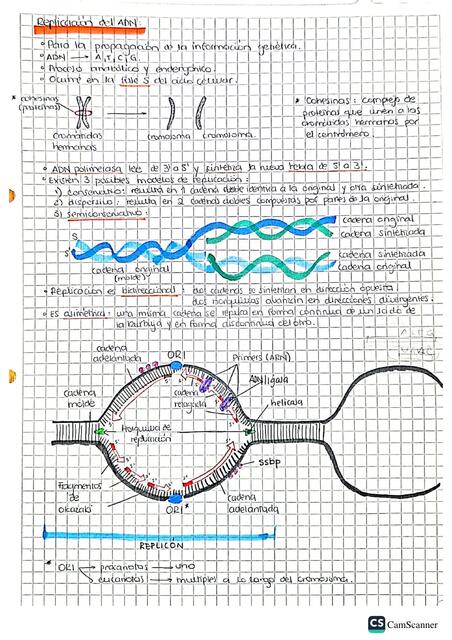 Replicación del ADN:
• Para la propagación de la información genética.
• ADN → A,T,C,G.
• Proceso anabólico y endergónico.
• Ocurre en la fase S del ciclo celular.
* cohesinas
(proteínas)
cromátidas
hermanas
cromosoma
cromosoma.
* Cohesinas: complejo de
proteínas que unen a las
cromátidas hermanas por
el centrómero.
• ADN polimerasa lee de 3' a 5' y sintetiza la nueva hebra de 5' a 3'.
• Existen 3 posibles modelos de replicación:
1) conservativo: resulta en 1 cadena doble idéntica a la original y otra sintetizada.
2) dispersivo: resulta en 2 cadenas dobles compuestas por partes de la original.
3) semiconservativo:
cadena original
cadena sintetizada
cadena sintetizada
cadena original
cadena original
(molde)
• Replicación es bidireccional: las cadenas se sintetizan en dirección opuesta.
dos horquillas avanzan en direcciones divergentes.
• Es asimétrica: una misma cadena se replica en forma continua de un lado de
la burbuja y en forma discontinua del otro.
cadena
adelantada
ORI
Primers (ARN)
ADN ligasa
helicasa
cadena
molde
cadena
retrasada
Horquilla de
replicación
ssbp
Fragmentos
de
Okazaki
ORI*
cadena
adelantada
REPLICÓN
* ORI → procariotas → uno
→ eucariotas → múltiples a lo largo del cromosoma.
CS CamScanner